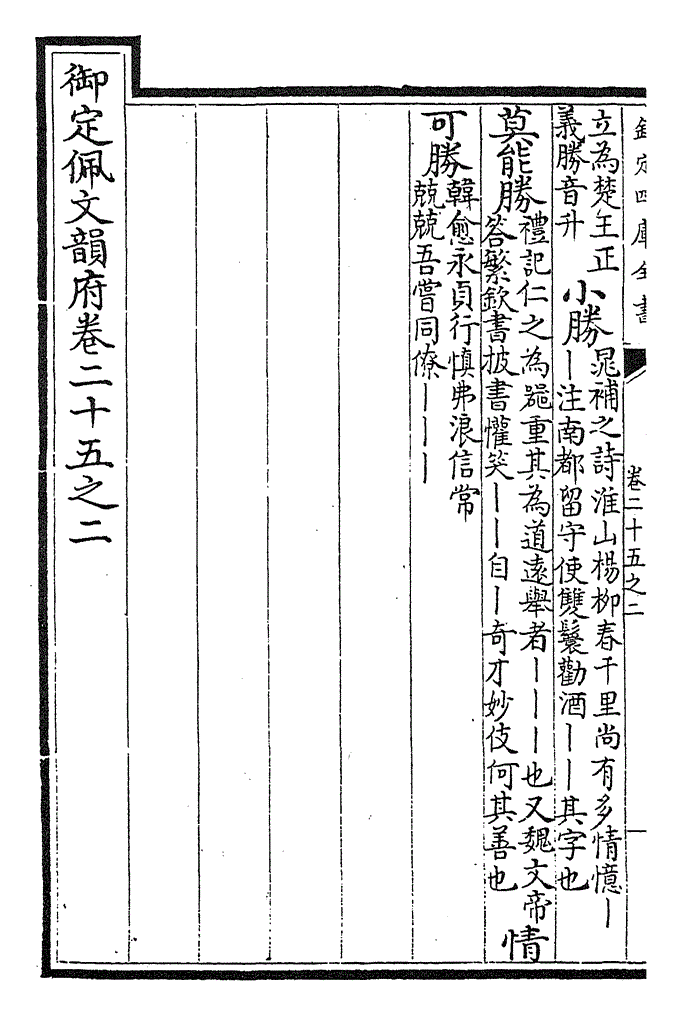 欽定四庫全書 卷二十五之二
立為楚王正
義勝音升
小勝
晁補之詩淮山楊柳春千里尚有多情憶丨
丨注南都留守使雙鬟勸酒丨丨其字也
莫能勝
禮記仁之為器重其為道遠舉者丨丨丨也又魏文帝
答繁欽書披書懽笑丨丨自丨奇才妙伎何其善也
情
可勝
韓愈永貞行慎弗浪信常
兢兢吾嘗同僚丨丨丨
御定佩文韻府卷二十五之二